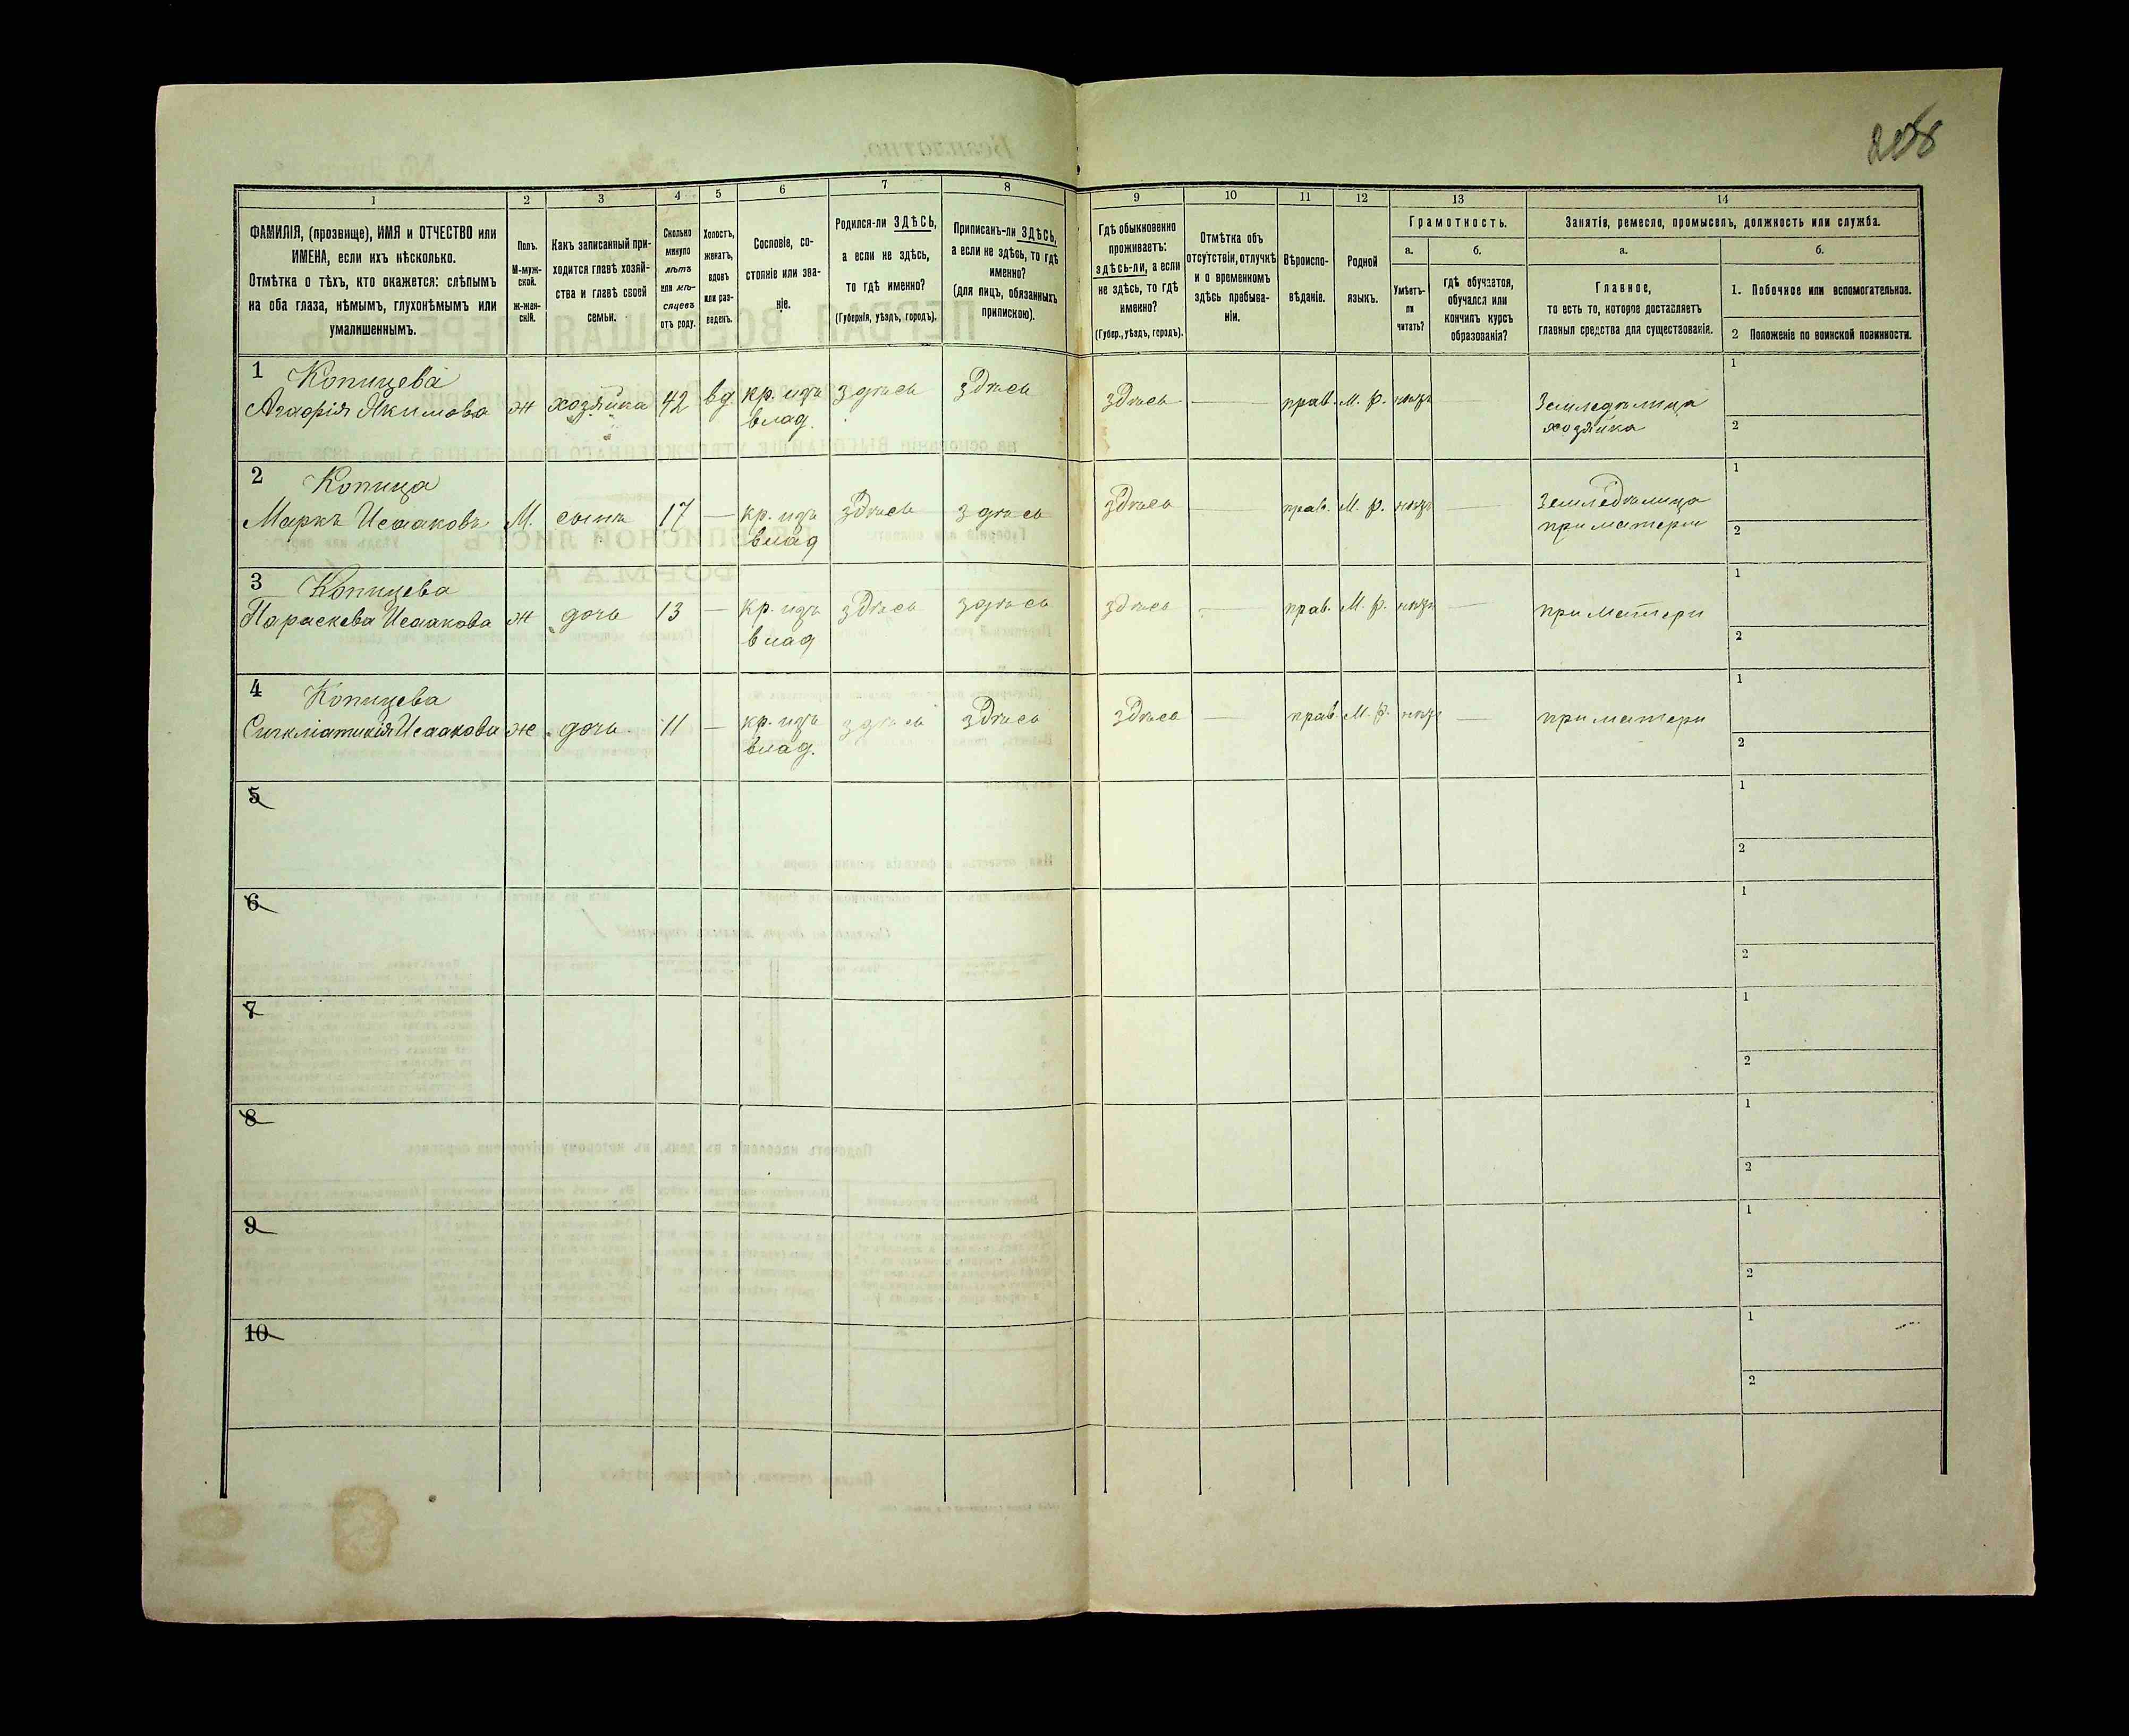 208
1
2
3
4
5
6
7
8
9
10
11
12
13
14
ФАМИЛІЯ, (прозвище), ИМЯ и ОТЧЕСТВО или
ИМЕНА, если ихъ нѣсколько.
Отмѣтка о тѣхъ, кто окажется: слѣпымъ
на оба глаза, нѣмымъ, глухонѣмымъ или
умалишеннымъ.
Полъ.
М-муж-
ской.
ж-жен-
скій.
Какъ записанный при-
ходится главѣ хозяй-
ства и главѣ своей
семьи.
Сколько
минуло
лѣтъ
или мѣ-
сяцевъ
отъ роду.
Холостъ,
женатъ,
вдовъ
или раз-
веденъ.
Сословіе, со-
стояніе или зва-
ніе.
Родился-ли ЗДѢСЬ,
а если не здѣсь,
то гдѣ именно?
(Губернія, уѣздъ, городъ).
Приписанъ-ли ЗДѢСЬ,
а если не здѣсь, то гдѣ
именно?
(для лицъ, обязанныхъ
припискою).
Гдѣ обыкновенно
проживаетъ:
здѣсь-ли, а если
не здѣсь, то гдѣ
именно?
(Губер., уѣздъ, городъ).
Отмѣтка объ
отсутствіи, отлучкѣ
и о временномъ
здѣсь пребыва-
ніи.
Вѣроиспо-
вѣданіе.
Родной
языкъ.
Грамотность.
а.
б.
Умѣетъ-
ли
читать?
гдѣ обучается,
обучался или
кончилъ курсъ
образованія?
Занятія, ремесло, промыселъ, должность или служба.
а.
б.
Главное,
то есть то, которое доставляетъ
главныя средства для существованія.
1. Побочное или вспомогательное.
2 Положеніе по воинской повинности.
1 Копицева
Агафія Якимова ж хозяйка 42 вд. кр. изъ здѣсь здѣсь здѣсь — прав. М. р. нѣтъ — Земледѣлица 1
влад. хозяйка 2
2 Копица
Маркъ Исааковъ М. сынъ 17 — кр. изъ здѣсь здѣсь здѣсь — прав. М. р. нѣтъ — Земледѣлица 1
влад при матери 2
3 Копицева
Параскева Исаакова ж дочь 13 — кр. изъ здѣсь здѣсь здѣсь — прав. М. р. нѣтъ — при матери 1
влад 2
4 Копицева
Сигклитикія Исаакова ж дочь 11 — кр. изъ здѣсь здѣсь здѣсь — прав. М. р. нѣтъ — при матери 1
влад. 2
5 1
2
6 1
2
7 1
2
8 1
2
9 1
2
10 1
2